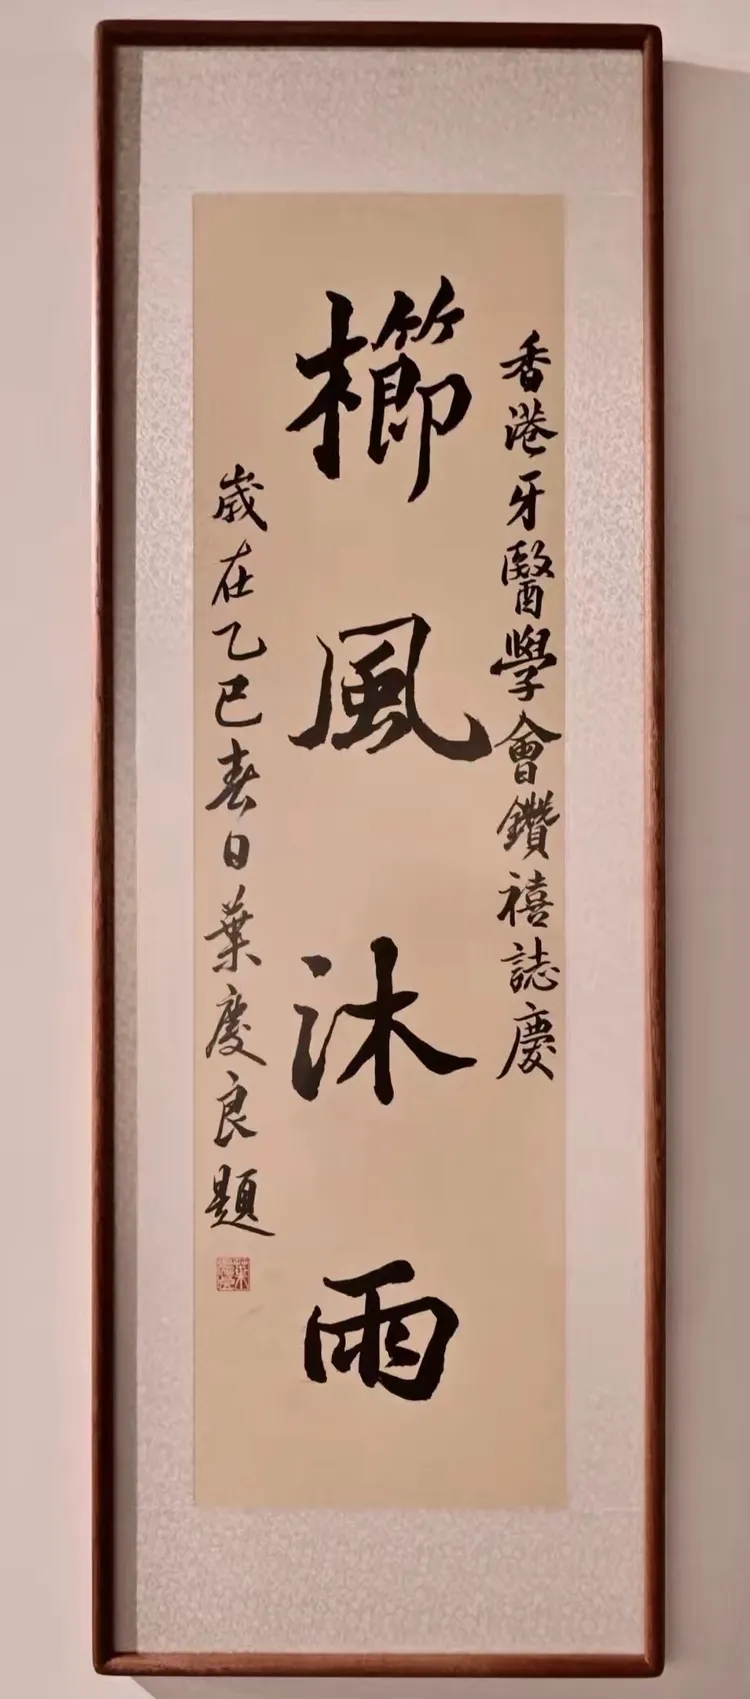 香港牙醫學會鑽禧誌慶
櫛風沐雨
歲在乙巳春日葉慶良題